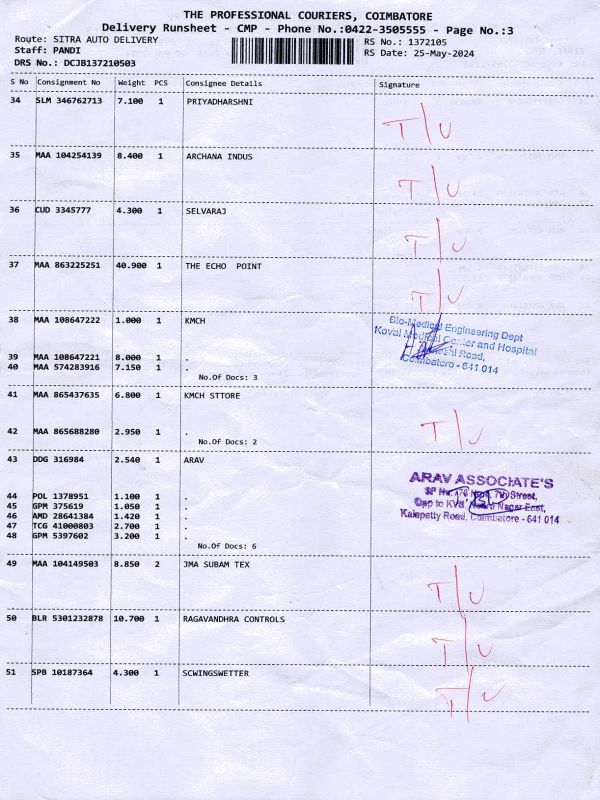 THE PROFESSIONAL COURIERS, COIMBATORE
Delivery Runsheet - CMP - Phone No.:0422-3505555 - Page No.:3
Route: SITRA AUTO DELIVERY RS No.: 1372105
Staff: PANDI RS Date: 25-May-2024
DRS No.: DCJB137210503
S No Consignment No Weight PCS Consignee Details Signature
34 SLM 346762713 7.100 1 PRIYADHARSHNI
T/U
35 MAA 104254139 8.400 1 ARCHANA INDUS
T/U
36 CUD 3345777 4.300 1 SELVARAJ
T/U
37 MAA 863225251 40.900 1 THE ECHO POINT
T/U
38 MAA 108647222 1.000 1 KMCH
Bio-Medical Engineering Dept
Kovai Medical Center and Hospital
Road,
Coimbatore - 641 014
39 MAA 108647221 8.000 1 .
40 MAA 574283916 7.150 1 .
No.Of Docs: 3
41 MAA 865437635 6.800 1 KMCH STTORE
T/U
42 MAA 865688280 2.950 1 .
No.Of Docs: 2
43 DDG 316984 2.540 1 ARAV
ARAV ASSOCIATE'S
SF No. 7th Street,
Opp to KVB, Nagar East,
Kalapatty Road, Coimbatore - 641 014
44 POL 1378951 1.100 1 .
45 GPM 375619 1.050 1 .
46 AMD 28641384 1.420 1 .
47 TCG 41000803 2.700 1 .
48 GPM 5397602 3.200 1 .
No.Of Docs: 6
49 MAA 104149503 8.850 2 JMA SUBAM TEX
T/U
50 BLR 5301232878 10.700 1 RAGAVANDHRA CONTROLS
T/U
51 SPB 10187364 4.300 1 SCWINGSWETTER
T/U